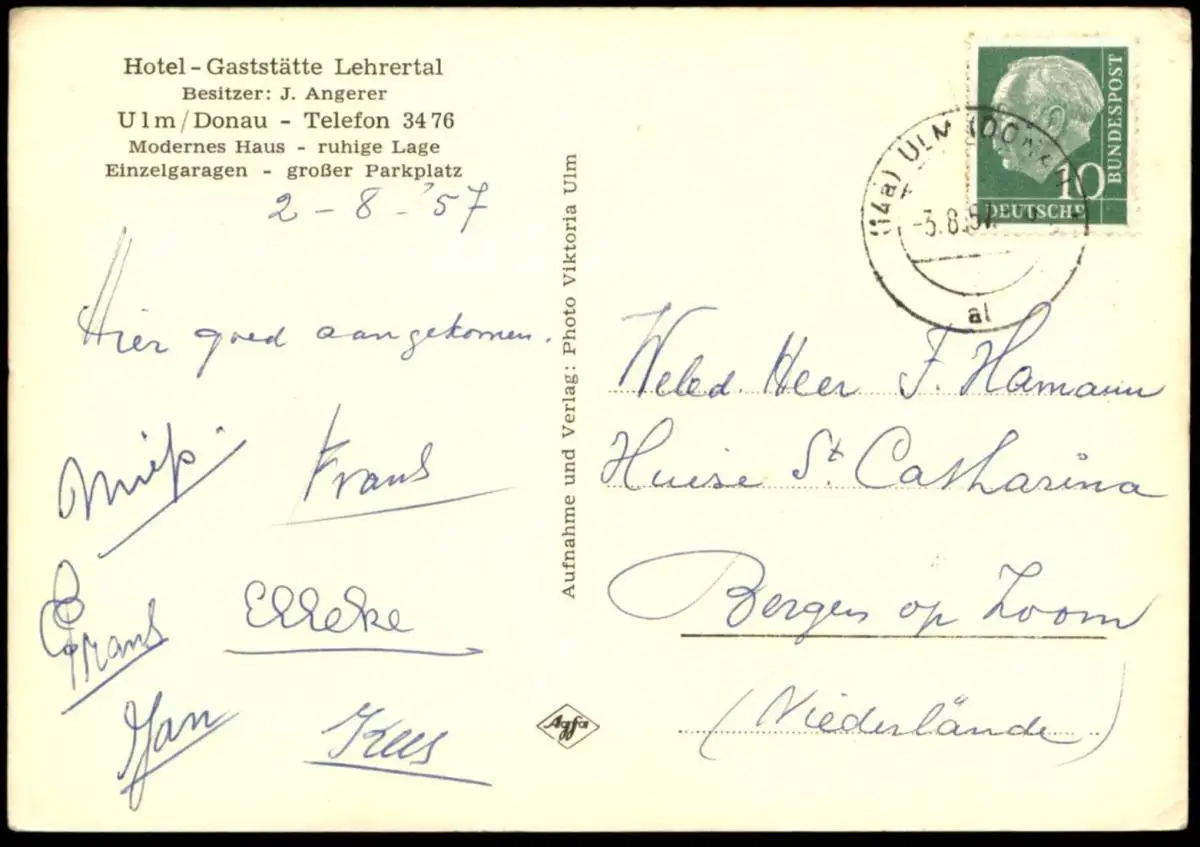 Hotel - Gaststätte Lehrertal
Besitzer: J. Angerer
Ulm/Donau - Telefon 34 76
Modernes Haus - ruhige Lage
Einzelgaragen - großer Parkplatz
2 - 8 - '57
Hier goed aangekomen.
Miep Frans
Frans Elleke
Jan Kees
Aufnahme und Verlag: Photo Viktoria Ulm
Agfa
DEUTSCHE
BUNDESPOST
10
(14a) ULM (DONAU)
-3.8.57
al
Weled. Heer F. Hamann
Huize St. Catharina
Bergen op Zoom
(Niederlände)